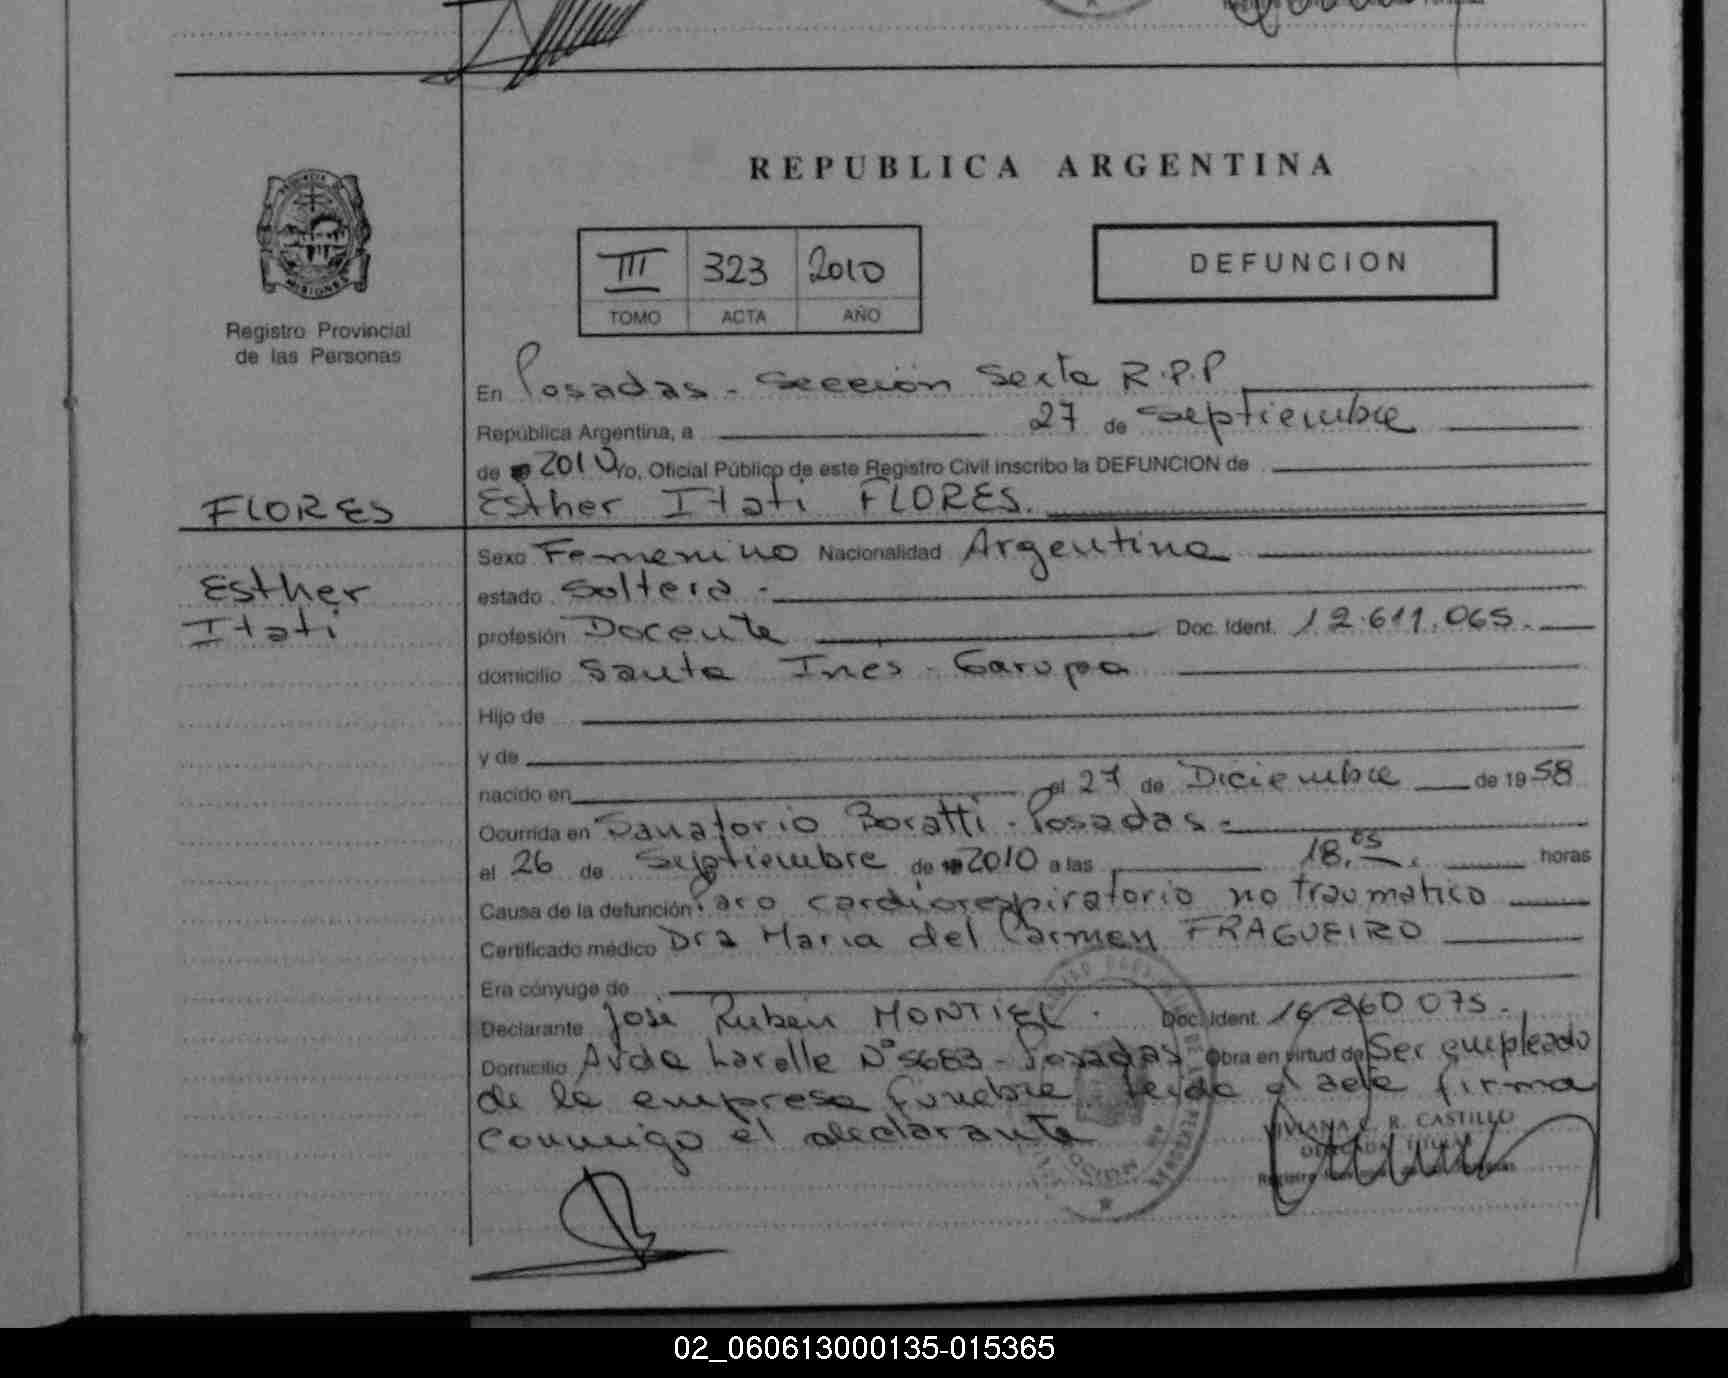 REPUBLICA ARGENTINA
III 323 2010
TOMO ACTA AÑO
DEFUNCION
PROVINCIA DE
MISIONES
Registro Provincial
de las Personas
En Posadas - Sección Sexta R.P.P
República Argentina, a 27 de Septiembre
de 2010 Yo, Oficial Público de este Registro Civil inscribo la DEFUNCION de
FLORES
Esther Itati FLORES.
Esther
Itati
Sexo Femenino Nacionalidad Argentina
estado Soltera.-
profesión Docente Doc. Ident. 12.611.065.
domicilio Santa Ines - Garupa
Hijo de
y de
nacido en el 27 de Diciembre de 1958
Ocurrida en Sanatorio Boratti - Posadas.-
el 26 de Septiembre de 2010 a las 18.05. horas
Causa de la defunción Paro cardiorespiratorio no traumatico
Certificado médico Dra Maria del Carmen FRAGUEIRO
Era cónyuge de
Declarante José Ruben MONTIEL. Doc. Ident. 16260075.
Domicilio Avda Laralle N° 5683 - Posadas Obra en virtud de Ser empleado
de la empresa funebre leida el acta firma
conmigo el declarante
VIVIANA R. CASTILLO
02_060613000135-015365